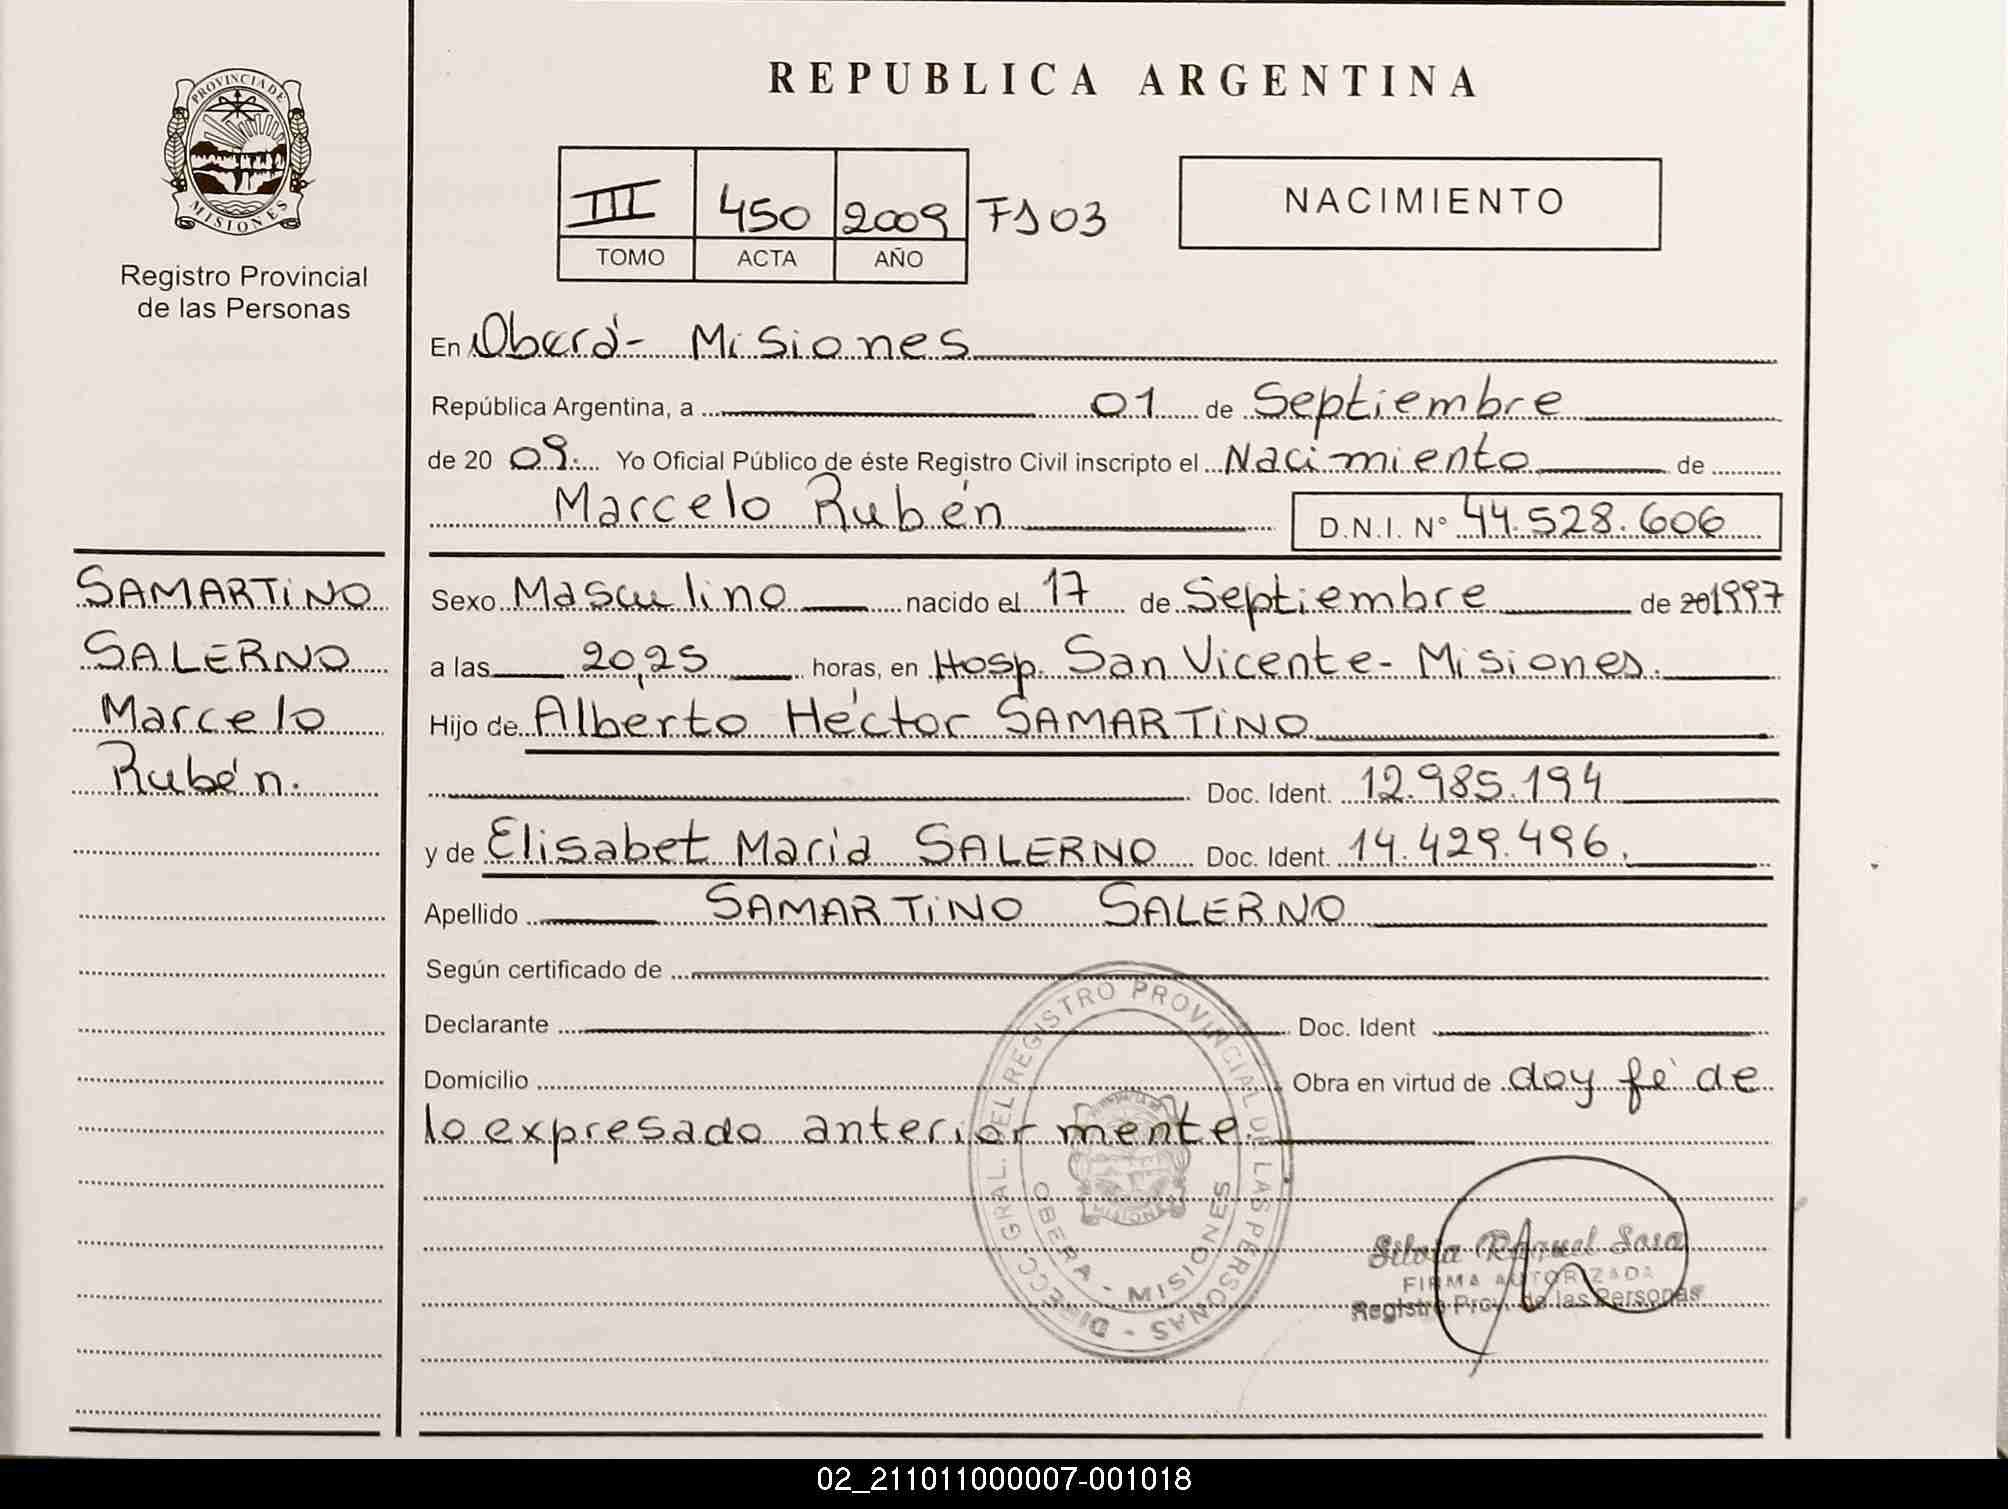 REPUBLICA ARGENTINA
PROVINCIA DE
MISIONES
Registro Provincial
de las Personas
III 450 2009 Fº 03
TOMO ACTA AÑO
NACIMIENTO
En Oberá - Misiones
República Argentina, a 01 de Septiembre
de 20 09. Yo Oficial Público de éste Registro Civil inscripto el Nacimiento de
Marcelo Rubén D.N.I. N° 44.528.606
SAMARTINO
SALERNO
Marcelo
Rubén.
Sexo Masculino nacido el 17 de Septiembre de 20 1997
a las 20,25 horas, en Hosp. San Vicente - Misiones.
Hijo de Alberto Héctor SAMARTINO
Doc. Ident. 12.985.194
y de Elisabet María SALERNO Doc. Ident. 14.429.496.
Apellido SAMARTINO SALERNO
Según certificado de
Declarante Doc. Ident
Domicilio Obra en virtud de doy fé de
lo expresado anteriormente.
DIRECC GRAL. DEL REGISTRO PROVINCIAL DE LAS PERSONAS -
OBERA - MISIONES
Silvia Raquel Sosa
FIRMA AUTORIZADA
Registro Prov. de las Personas
02_211011000007-001018